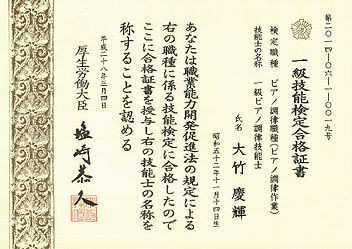 第二〇一四-〇六-一-〇〇一九号
一級技能検定合格証書
検定職種 ピアノ調律職種(ピアノ調律作業)
技能士の名称 一級ピアノ調律技能士
氏名 大竹慶輝
昭和五十二年十一月十四日生
あなたは職業能力開発促進法の規定による
右の職種に係る技能検定に合格したので
ここに合格証書を授与し右の技能士の名称を
称することを認める
平成二十八年三月四日
厚生労働大臣 塩崎恭久